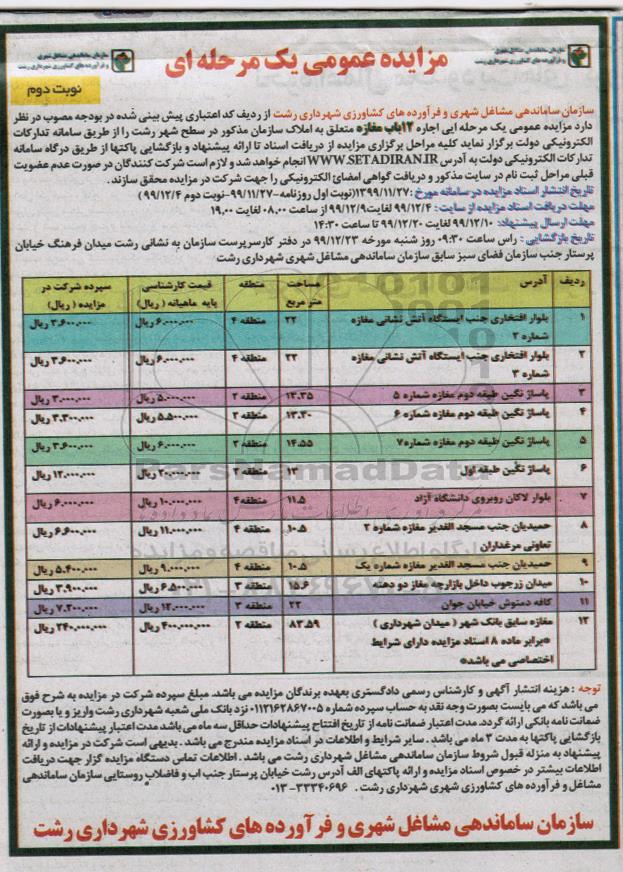 مزایده عمومی یک مرحله ای
سازمان ساماندهی مشاغل شهری
و فرآورده های کشاورزی شهرداری رشت
سازمان ساماندهی مشاغل شهری
و فرآورده های کشاورزی شهرداری رشت
نوبت دوم
سازمان ساماندهی مشاغل شهری و فرآورده های کشاورزی شهرداری رشت از ردیف کد اعتباری پیش بینی شده در بودجه مصوب در نظر
دارد مزایده عمومی یک مرحله ایی اجاره ۱۲باب مغازه متعلق به املاک سازمان مذکور در سطح شهر رشت را از طریق سامانه تدارکات
الکترونیکی دولت برگزار نماید کلیه مراحل برگزاری مزایده از دریافت اسناد تا ارائه پیشنهاد و بازگشایی پاکتها از طریق درگاه سامانه
تدارکات الکترونیکی دولت به آدرس WWW.SETADIRAN.IR انجام خواهد شد و لازم است شرکت کنندگان در صورت عدم عضویت
قبلی مراحل ثبت نام در سایت مذکور و دریافت گواهی امضائ الکترونیکی را جهت شرکت در مزایده محقق سازند.
تاریخ انتشار اسناد مزایده در سامانه مورخ :۱۳۹۹/۱۱/۲۷(نوبت اول روزنامه-۹۹/۱۱/۲۷-نوبت دوم ۹۹/۱۲/۴)
مهلت دریافت اسناد مزایده از سایت : ۹۹/۱۲/۴ لغایت۹۹/۱۲/۹ از ساعت ۰۸.۰۰ لغایت ۱۹.۰۰
مهلت ارسال پیشنهاد: ۹۹/۱۲/۱۰ لغایت ۹۹/۱۲/۲۰ تا ساعت ۱۴:۳۰
تاریخ بازگشایی : راس ساعت ۰۹:۳۰ روز شنبه مورخه ۹۹/۱۲/۲۳ در دفتر کارسرپرست سازمان به نشانی رشت میدان فرهنگ خیابان
پرستار جنب سازمان فضای سبز سابق سازمان ساماندهی مشاغل شهری شهرداری رشت
ردیف آدرس مساحت متر مربع منطقه قیمت کارشناسی پایه ماهیانه ( ریال) سپرده شرکت در مزایده ( ریال)
۱ بلوار افتخاری جنب ایستگاه آتش نشانی مغازه شماره ۲ ۲۲ منطقه ۴ ۶.۰۰۰.۰۰۰ ریال ۳.۶۰۰.۰۰۰ ریال
۲ بلوار افتخاری جنب ایستگاه آتش نشانی مغازه شماره ۳ ۲۲ منطقه ۴ ۶.۰۰۰.۰۰۰ ریال ۳.۶۰۰.۰۰۰ ریال
۳ پاساژ نگین طبقه دوم مغازه شماره ۵ ۱۳.۳۵ منطقه ۲ ۵.۰۰۰.۰۰۰ ریال ۳.۰۰۰.۰۰۰ ریال
۴ پاساژ نگین طبقه دوم مغازه شماره ۶ ۱۳.۳۰ منطقه ۲ ۵.۵۰۰.۰۰۰ ریال ۳.۳۰۰.۰۰۰ ریال
۵ پاساژ نگین طبقه دوم مغازه شماره۷ ۱۴.۵۵ منطقه ۲ ۶.۰۰۰.۰۰۰ ریال ۳.۶۰۰.۰۰۰ ریال
۶ پاساژ نگین طبقه اول ۱۳ منطقه ۲ ۲۰.۰۰۰.۰۰۰ ریال ۱۲.۰۰۰.۰۰۰ ریال
۷ بلوار لاکان روبروی دانشگاه آزاد ۱۱.۵ منطقه۴ ۱۰.۰۰۰.۰۰۰ ریال ۶.۰۰۰.۰۰۰ ریال
۸ حمیدیان جنب مسجد الغدیر مغازه شماره ۲ تعاونی مرغداران ۱۰.۵ منطقه ۴ ۱۱.۰۰۰.۰۰۰ ریال ۶.۶۰۰.۰۰۰ ریال
۹ حمیدیان جنب مسجد الغدیر مغازه شماره یک ۱۰.۵ منطقه ۴ ۹.۰۰۰.۰۰۰ ریال ۵.۴۰۰.۰۰۰ ریال
۱۰ میدان زرجوب داخل بازارچه مغاز دو دهنه ۱۵.۶ منطقه ۳ ۶.۵۰۰.۰۰۰ ریال ۳.۹۰۰.۰۰۰ ریال
۱۱ کافه دمنوش خیابان جوان ۲۲ منطقه ۳ ۱۲.۰۰۰.۰۰۰ ریال ۷.۲۰۰.۰۰۰ ریال
۱۲ مغازه سابق بانک شهر ( میدان شهرداری ) *برابر ماده ۸ اسناد مزایده دارای شرایط اختصاصی می باشد* ۸۳.۵۹ منطقه ۲ ۴۰۰.۰۰۰.۰۰۰ ریال ۲۴۰.۰۰۰.۰۰۰ ریال
توجه : هزینه انتشار آگهی و کارشناس رسمی دادگستری بعهده برندگان مزایده می باشد. مبلغ سپرده شرکت در مزایده به شرح فوق
می باشد که می بایست بصورت وجه نقد به حساب سپرده شماره ۰۱۱۲۱۶۲۸۶۷۰۰۵ نزد بانک ملی شعبه شهرداری رشت واریز و یا بصورت
ضمانت نامه بانکی ارائه گردد. مدت اعتبار ضمانت نامه از تاریخ افتتاح پیشنهادات حداقل سه ماه می باشد مدت اعتبار پیشنهادات از تاریخ
بازگشایی پاکتها به مدت ۳ ماه می باشد . سایر شرایط و اطلاعات در اسناد مزایده مندرج می باشد . بدیهی است شرکت در مزایده و ارائه
پیشنهاد به منزله قبول شروط سازمان ساماندهی مشاغل شهرداری رشت می باشد . اطلاعات تماس دستگاه مزایده گزار جهت دریافت
اطلاعات بیشتر در خصوص اسناد مزایده و ارائه پاکتهای الف آدرس رشت خیابان پرستار جنب اب و فاضلاب روستایی سازمان ساماندهی
مشاغل و فرآورده های کشاورزی شهری شهرداری رشت . ۳۳۳۴۰۶۹۶-۰۱۳
سازمان ساماندهی مشاغل شهری و فرآورده های کشاورزی شهرداری رشت
ParsNamadData